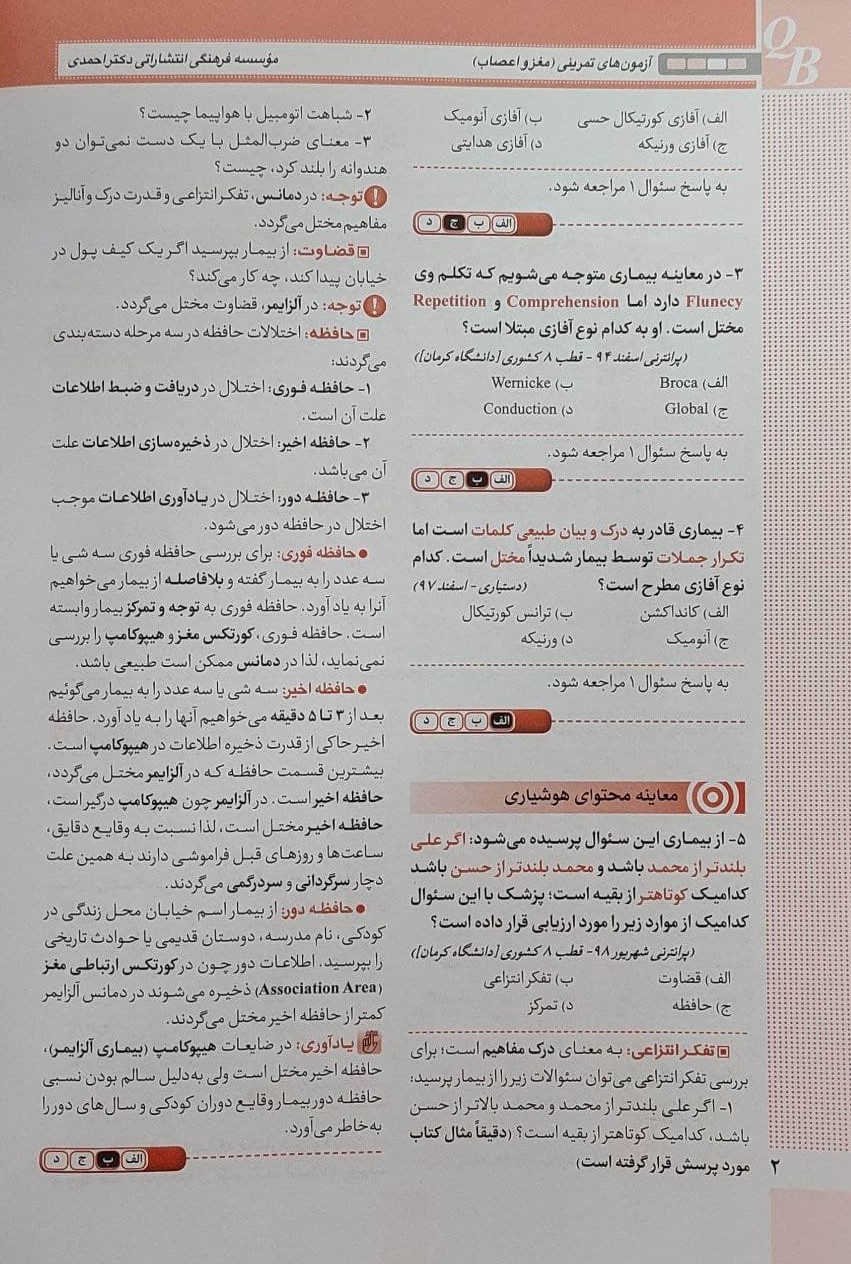 QB
آزمون‌های تمرینی (مغز و اعصاب)
مؤسسه فرهنگی انتشاراتی دکتر احمدی
الف) آفازی کورتیکال حسی ب) آفازی آنومیک
ج) آفازی ورنیکه د) آفازی هدایتی
به پاسخ سئوال ۱ مراجعه شود.
الف ب ج د
۳- در معاینه بیماری متوجه می‌شویم که تکلم وی
Flunecy دارد اما Comprehension و Repetition
مختل است. او به کدام نوع آفازی مبتلا است؟
(پرانترنی اسفند ۹۴ - قطب ۸ کشوری [دانشگاه کرمان])
الف) Broca ب) Wernicke
ج) Global د) Conduction
به پاسخ سئوال ۱ مراجعه شود.
الف ب ج د
۴- بیماری قادر به درک و بیان طبیعی کلمات است اما
تکرار جملات توسط بیمار شدیداً مختل است. کدام
نوع آفازی مطرح است؟ (دستیاری - اسفند ۹۷)
الف) کانداکشن ب) ترانس کورتیکال
ج) آنومیک د) ورنیکه
به پاسخ سئوال ۱ مراجعه شود.
الف ب ج د
معاینه محتوای هوشیاری
۵- از بیماری این سئوال پرسیده می‌شود: اگر علی
بلندتر از محمد باشد و محمد بلندتر از حسن باشد
کدامیک کوتاهتر از بقیه است؛ پزشک با این سئوال
کدامیک از موارد زیر را مورد ارزیابی قرار داده است؟
(پرانترنی شهریور ۹۸- قطب ۸ کشوری [دانشگاه کرمان])
الف) قضاوت ب) تفکر انتزاعی
ج) حافظه د) تمرکز
تفکر انتزاعی: به معنای درک مفاهیم است؛ برای
بررسی تفکر انتزاعی می‌توان سئوالات زیر را از بیمار پرسید:
۱- اگر علی بلندتر از محمد و محمد بالاتر از حسن
باشد، کدامیک کوتاهتر از بقیه است؟ (دقیقاً مثال کتاب
مورد پرسش قرار گرفته است)
۲- شباهت اتومبیل با هواپیما چیست؟
۳- معنای ضرب‌المثل با یک دست نمی‌توان دو
هندوانه را بلند کرد، چیست؟
توجه: در دمانس، تفکر انتزاعی و قدرت درک و آنالیز
مفاهیم مختل می‌گردد.
قضاوت: از بیمار بپرسید اگر یک کیف پول در
خیابان پیدا کند، چه کار می‌کند؟
توجه: در آلزایمر، قضاوت مختل می‌گردد.
حافظه: اختلالات حافظه در سه مرحله دسته‌بندی
می‌گردند:
۱- حافظه فوری: اختلال در دریافت و ضبط اطلاعات
علت آن است.
۲- حافظه اخیر: اختلال در ذخیره‌سازی اطلاعات علت
آن می‌باشد.
۳- حافظه دور: اختلال در یادآوری اطلاعات موجب
اختلال در حافظه دور می‌شود.
● حافظه فوری: برای بررسی حافظه فوری سه شی یا
سه عدد را به بیمار گفته و بلافاصله از بیمار می‌خواهیم
آنرا به یاد آورد. حافظه فوری به توجه و تمرکز بیمار وابسته
است. حافظه فوری، کورتکس مغز و هیپوکامپ را بررسی
نمی‌نماید، لذا در دمانس ممکن است طبیعی باشد.
● حافظه اخیر: سه شی یا سه عدد را به بیمار می‌گوئیم
بعد از ۳ تا ۵ دقیقه می‌خواهیم آنها را به یاد آورد. حافظه
اخیر حاکی از قدرت ذخیره اطلاعات در هیپوکامپ است.
بیشترین قسمت حافظه که در آلزایمر مختل می‌گردد،
حافظه اخیر است. در آلزایمر چون هیپوکامپ درگیر است،
حافظه اخیر مختل است، لذا نسبت به وقایع دقایق،
ساعت‌ها و روزهای قبل فراموشی دارند به همین علت
دچار سرگردانی و سردرگمی می‌گردند.
● حافظه دور: از بیمار اسم خیابان محل زندگی در
کودکی، نام مدرسه، دوستان قدیمی یا حوادث تاریخی
را بپرسید. اطلاعات دور چون در کورتکس ارتباطی مغز
(Association Area) ذخیره می‌شوند در دمانس آلزایمر
کمتر از حافظه اخیر مختل می‌گردند.
یادآوری: در ضایعات هیپوکامپ (بیماری آلزایمر)،
حافظه اخیر مختل است ولی به‌دلیل سالم بودن نسبی
حافظه دور بیمار وقایع دوران کودکی و سال‌های دور را
به خاطر می‌آورد.
الف ب ج د
۲